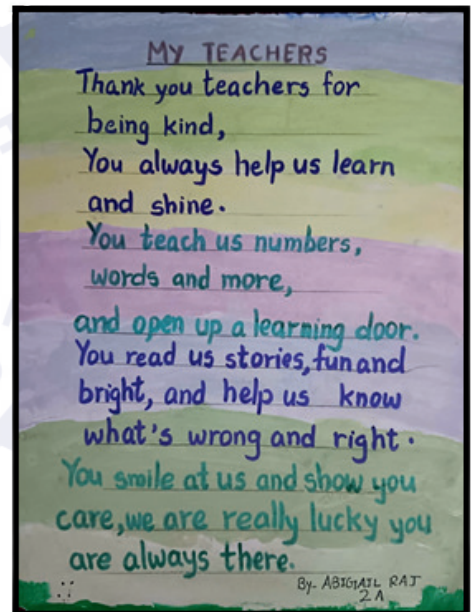 MY TEACHERS
Thank you teachers for
being kind,
You always help us learn
and shine.
You teach us numbers,
words and more,
and open up a learning door.
You read us stories, fun and
bright, and help us know
what's wrong and right.
You smile at us and show you
care, we are really lucky you
are always there.
By- ABIGAIL RAJ
2A